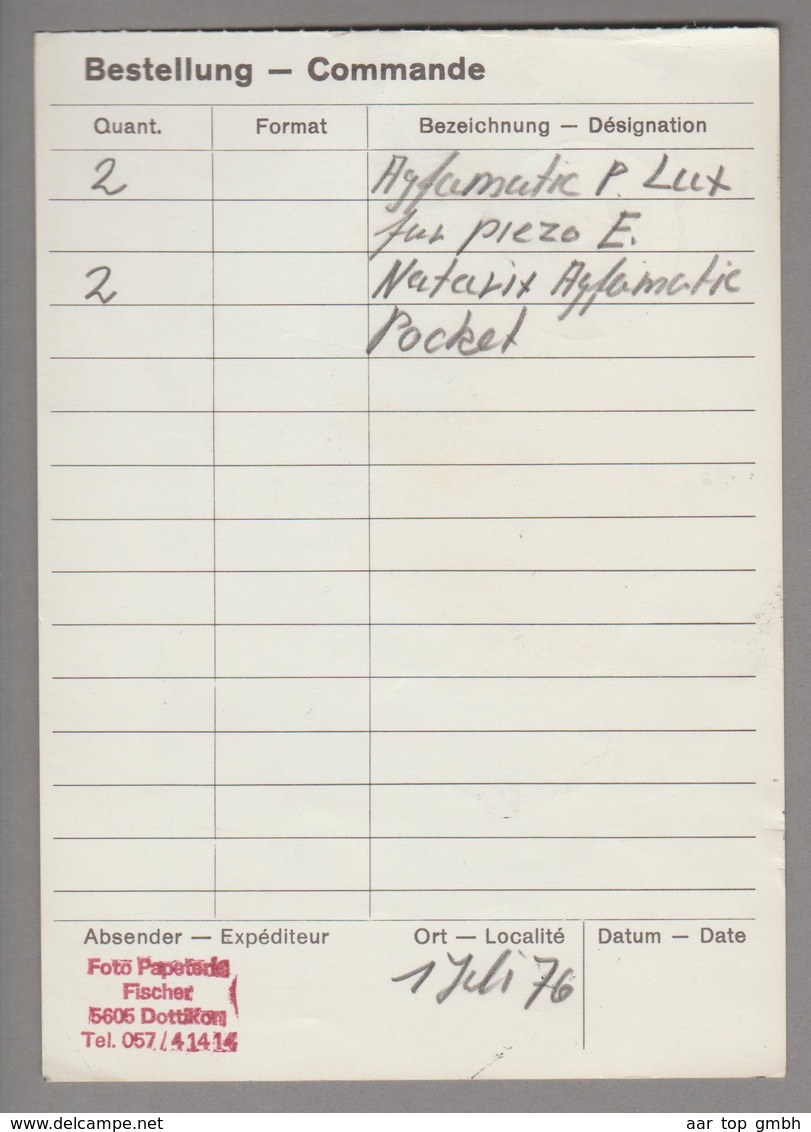 Bestellung — Commande
Quant. Format Bezeichnung — Désignation
2 Agfamatic P. Lux
fur piezo E.
2 Natarix Agfamatic
Pocket
Absender — Expéditeur Ort — Localité Datum — Date
Foto Papeterie
Fischer
5605 Dottikon
Tel. 057 / 4 14 14
1 Juli 76
www.delcampe.net
aar top gmbh